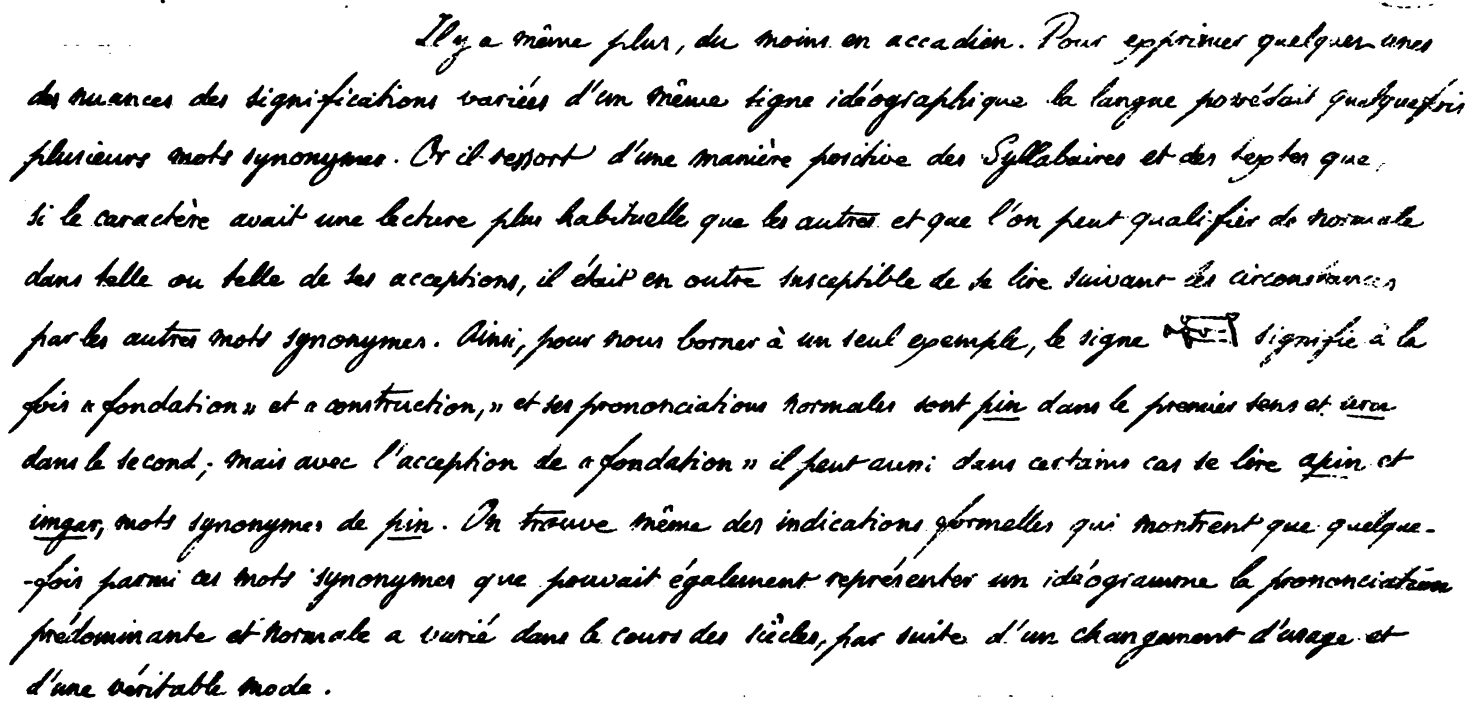 Il y a même plus, du moins en accadien. Pour exprimer quelques-unes
des nuances des significations variées d'un même signe idéographique la langue possédait quelquefois
plusieurs mots synonymes. Or il ressort d'une manière positive des Syllabaires et des textes que,
si le caractère avait une lecture plus habituelle que les autres et que l'on peut qualifier de normale
dans telle ou telle de ses acceptions, il était en outre susceptible de se lire suivant les circonstances
par les autres mots synonymes. Ainsi, pour nous borner à un seul exemple, le signe signifie à la
fois « fondation » et « construction, » et ses prononciations normales sont pin dans le premier sens et uru
dans le second; mais avec l'acception de « fondation » il peut aussi dans certains cas se lire apin et
ingar, mots synonymes de pin. On trouve même des indications formelles qui montrent que quelque-
-fois parmi ces mots synonymes que pouvait également représenter un idéogramme la prononciation
prédominante et normale a varié dans le cours des siècles, par suite d'un changement d'usage et
d'une véritable mode.